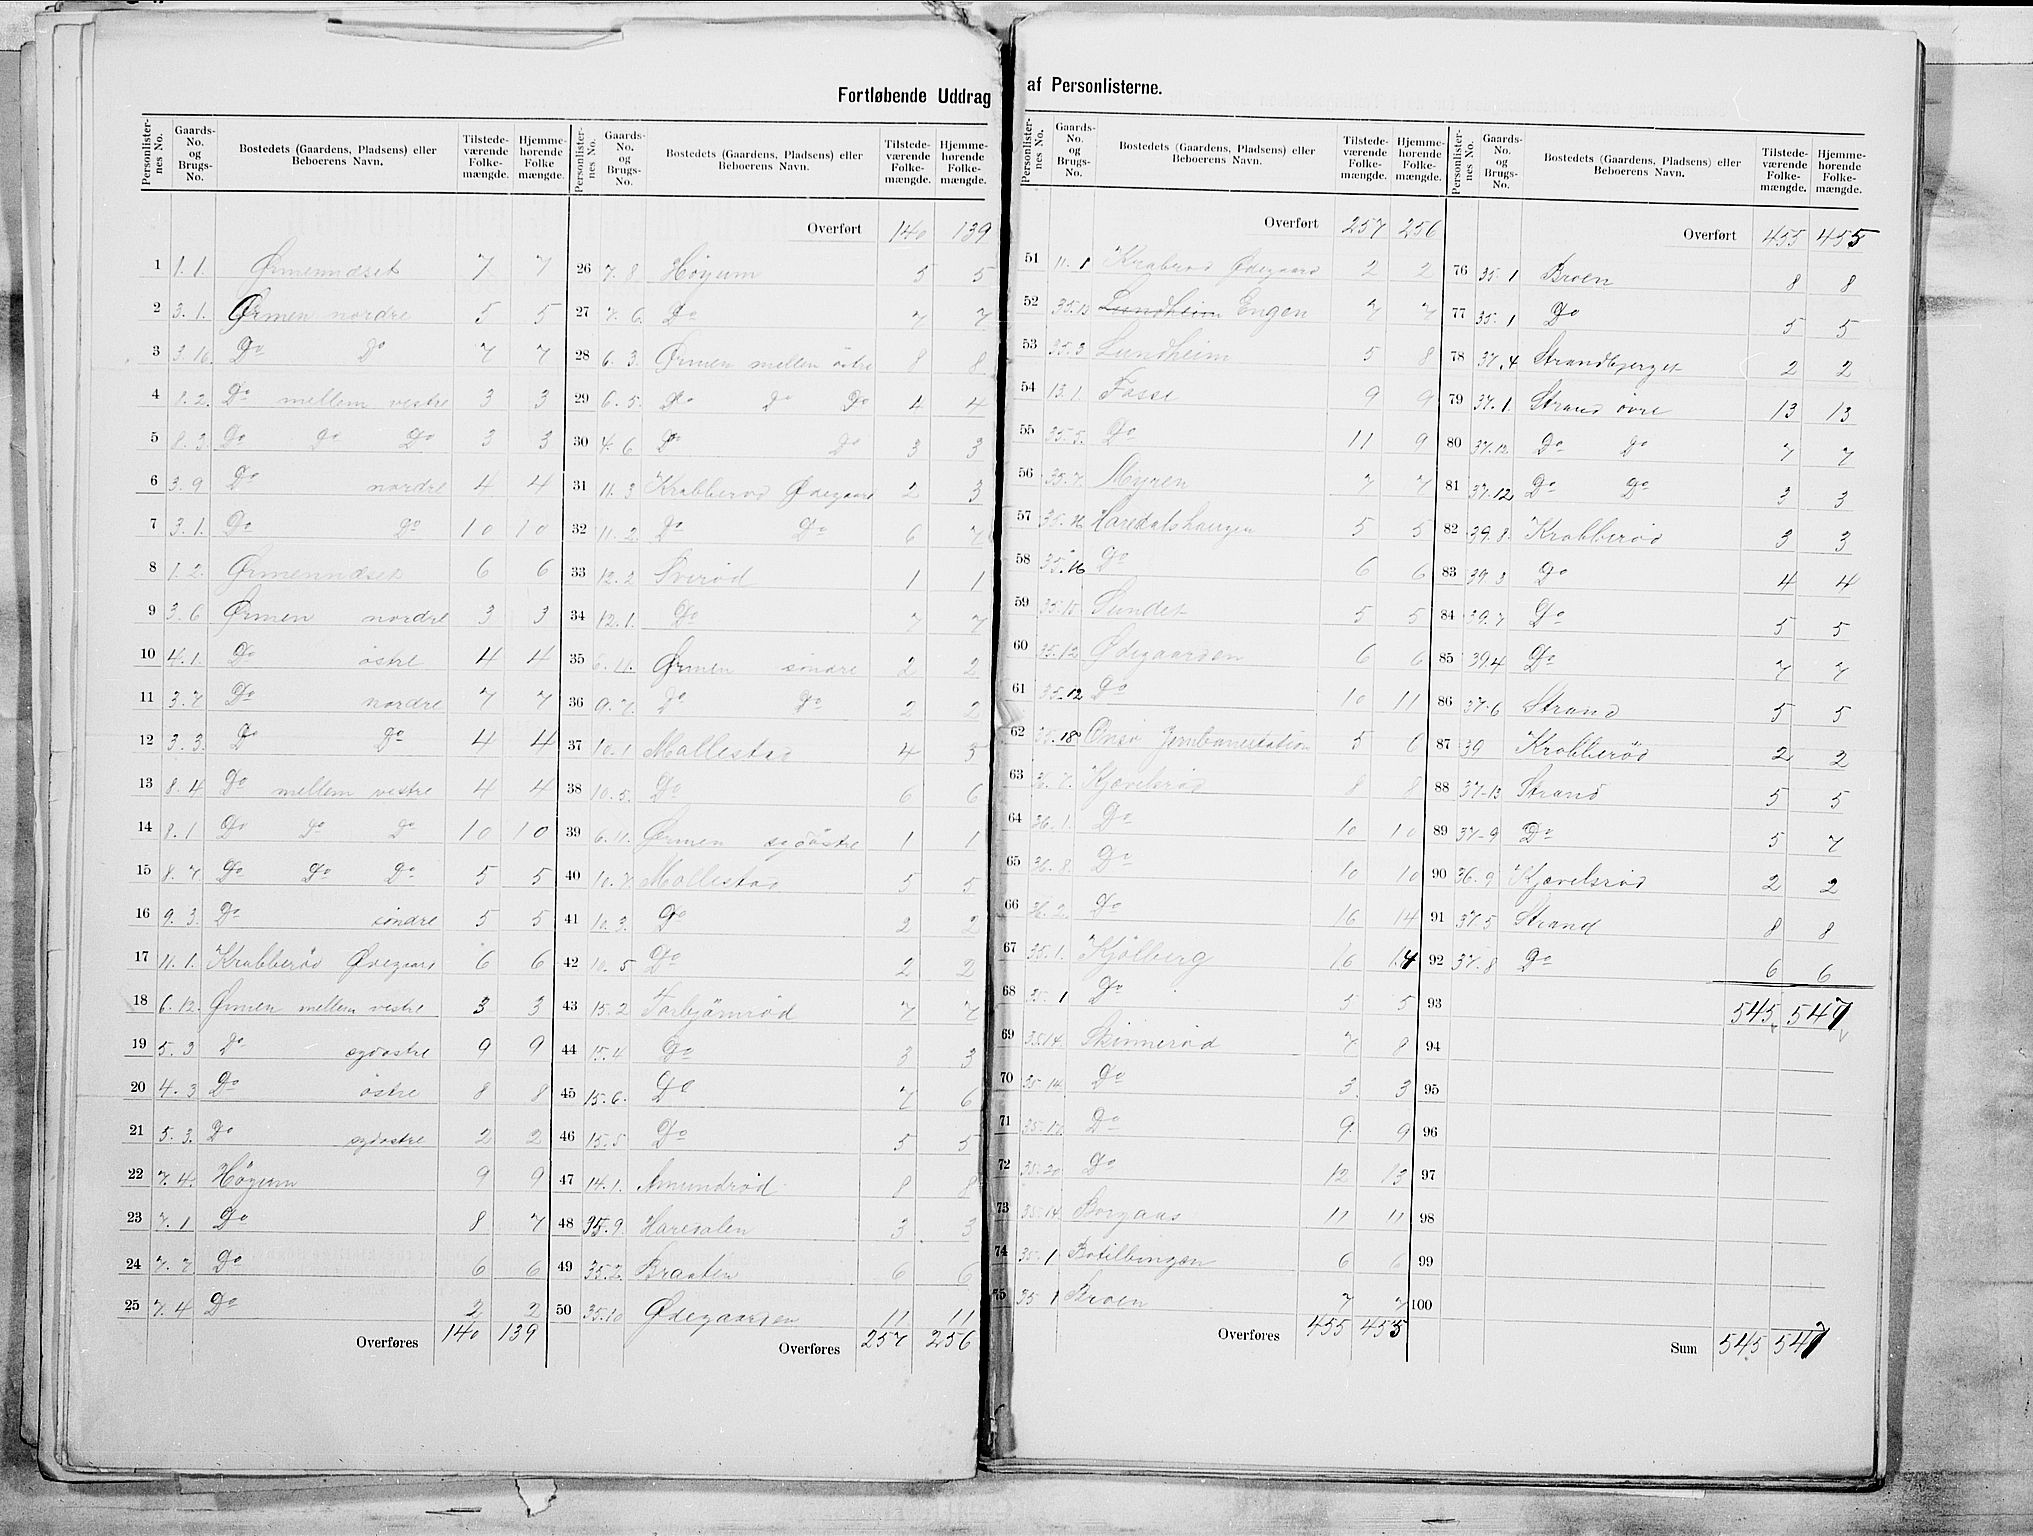 Fortløbende Uddrag af Personlisterne.
Personlister-nes No. Gaards-No. og Brugs-No. Bostedets (Gaardens, Pladsens) eller Beboerens Navn. Tilstede-værende Folke-mængde. Hjemme-hørende Folke mængde.
1 1.1. Ørmenndset 7 7
2 3.1. Ørmen nordre 5 5
3 3.16. Do Do 7 7
4 8.2. Do mellem vestre 3 3
5 8.3. Do Do Do 3 3
6 3.9 Do nordre 4 4
7 3.1. Do Do 10 10
8 1.2. Ørmenndset 6 6
9 3.6 Ørmen nordre 3 3
10 4.1. Do östre 4 4
11 3.7 Do nordre 7 7
12 3.3. Do Do 4 4
13 8.4 Do mellem vestre 4 4
14 8.1 Do Do Do 10 10
15 8.7 Do Do Do 5 5
16 9.3. Do söndre 5 5
17 11.1. Krabberöd Ødegaard 6 6
18 6.12. Ørmen mellem vestre 3 3
19 5.3 Do sydöstre 9 9
20 4.3 Do östre 8 8
21 5.3. Do sydöstre 2 2
22 7.4. Höyum 9 9
23 7.1 Do 8 7
24 7.7 Do 6 6
25 7.4 Do 2 2
Overføres 140 139
Personlister-nes No. Gaards-No. og Brugs-No. Bostedets (Gaardens, Pladsens) eller Beboerens Navn. Tilstede-værende Folke-mængde. Hjemme-hørende Folke-mængde.
Overført 140 139
26 7.8. Höyum 5 5
27 7.6. Do 7 7
28 6.3. Ørmen mellem östre 8 8
29 6.5. Do Do Do 4 4
30 4.6 Do Do 3 3
31 11.3 Krabberöd Ødegaard 2 3
32 11.2. Do Do 6 7
33 12.2 Sveröd 1 1
34 12.1. Do 7 7
35 6.11. Ørmen söndre 2 2
36 9.7. Do Do 2 2
37 10.1 Mallestad 4 5
38 10.5. Do 6 6
39 6.11. Ørmen sydöstre 1 1
40 10.7 Mallestad 5 5
41 10.3. Do 2 2
42 10.5 Do 2 2
43 15.2 Torbjörnröd 7 7
44 15.4 Do 3 3
45 15.6. Do 7 6
46 15.5 Do 5 5
47 14.1. Amundröd 8 8
48 35.9. Haredalen 3 3
49 35.2. Braaten 6 6
50 35.10 Ødegaarden 11 11
Overføres 257 256
Personlister-nes No. Gaards-No. og Brugs-No. Bostedets (Gaardens, Pladsens) eller Beboerens Navn. Tilstede-værende Folke-mængde. Hjemme-hørende Folke-mængde.
Overført 257 256
51 11.1 Krabberöd Ødegaard 2 2
52 35.13 Lundheim Engen 7 7
53 35.3 Lundheim 5 8
54 13.1. Fosse 9 9
55 35.5. Do 11 9
56 35.7. Myren 7 7
57 35.16 Haredalshaugen 5 5
58 35.16 Do 6 6
59 35.15 Sundet 5 5
60 35.12 Ødegaarden 6 6
61 35.12 Do 10 11
62 35.18 Onsö Jernbanestation 5 6
63 36.7. Kjævelsröd 8 8
64 36.1. Do 10 10
65 36.8. Do 10 10
66 36.2. Do 16 14
67 35.1. Kjölberg 16 14
68 35.1 Do 5 5
69 35.14. Skinneröd 7 8
70 35.14 Do 3 3
71 35.14 Do 9 9
72 35.20 Do 12 13
73 35.14 Borgaas 11 11
74 35.1 Botilbingen 6 6
75 35.1 Broen 7 7
Overføres 455 455
Personlister-nes No. Gaards-No. og Brugs-No. Bostedets (Gaardens, Pladsens) eller Beboerens Navn. Tilstede-værende Folke-mængde. Hjemme-hørende Folke-mængde.
Overført 455 455
76 35.1 Broen 8 8
77 35.1 Do 5 5
78 37.4 Strandbjerget 2 2
79 37.1. Strand övre 13 13
80 37.12. Do Do 7 7
81 37.12 Do Do 3 3
82 39.8. Krabberöd 3 3
83 39.3 Do 4 4
84 39.7 Do 5 5
85 39.4 Do 7 7
86 37-6 Strand 5 5
87 39 Krabberöd 2 2
88 37-13 Strand 5 5
89 37-9 Do 5 7
90 36.9 Kjævelsröd 2 2
91 37.5 Strand 8 8
92 37.8 Do 6 6
93 545 547
94
95
96
97
98
99
100
Sum 545 547